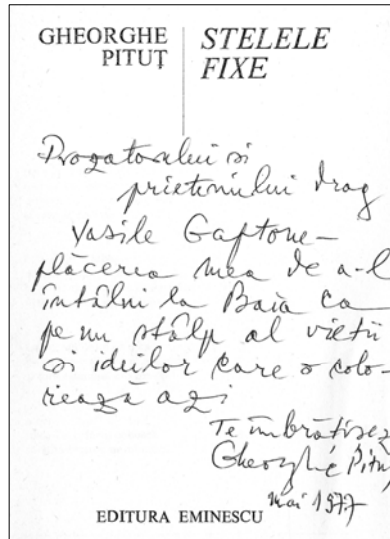 GHEORGHE PITUȚ
STELELE FIXE
Prozatorului și
prietenului drag
Vasile Gaftone –
plăcerea mea de a-l
întâlni la Baia ca
pe un stâlp al vieții
și ideilor care o colo-
rează azi
Te îmbrățișez
Gheorghe Pituț
mai 1977
EDITURA EMINESCU